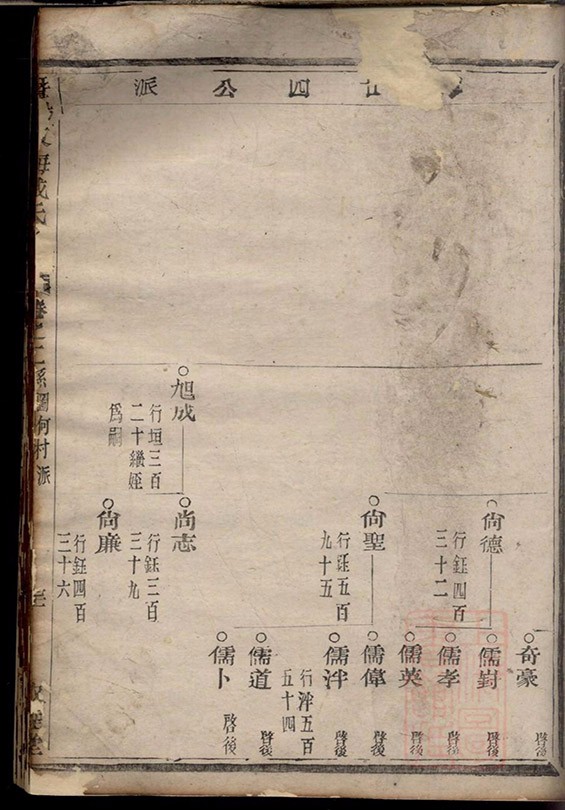 廿四公派
奇豪
啓後
尙德
行鈺四百
三十二
儒尌
啓後
儒孝
啓後
儒英
啓後
尙聖
行鈺五百
九十五
儒偉
啓後
儒泮
行泮五百
五十四
啓後
儒道
啓後
儒卜
啓後
旭成
行垣三百
二十繼姪
爲嗣
尙志
行鈺三百
三十九
尙廉
行鈺四百
三十六
系圖何村派